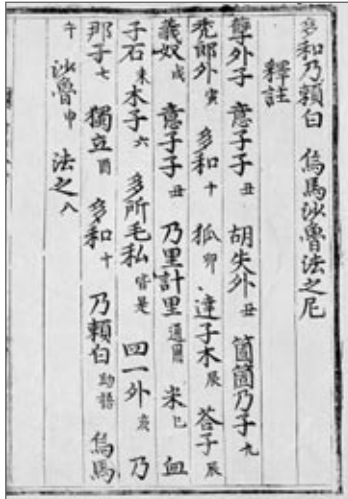 多和乃賴白 烏馬沙魯法之尼
釋註
孽外子 意子子丑 胡失外丑 箇箇乃子九
禿郎外寅 多和十 狐卯 達子木辰 荅子辰
義奴戌 意子子丑 乃里計里 米巳 血
子石未 木子六 多所毛私皆是 四一外亥 乃
那子七 獨立酉 多和十 乃賴白助語 烏馬
午 沙魯申 法之八